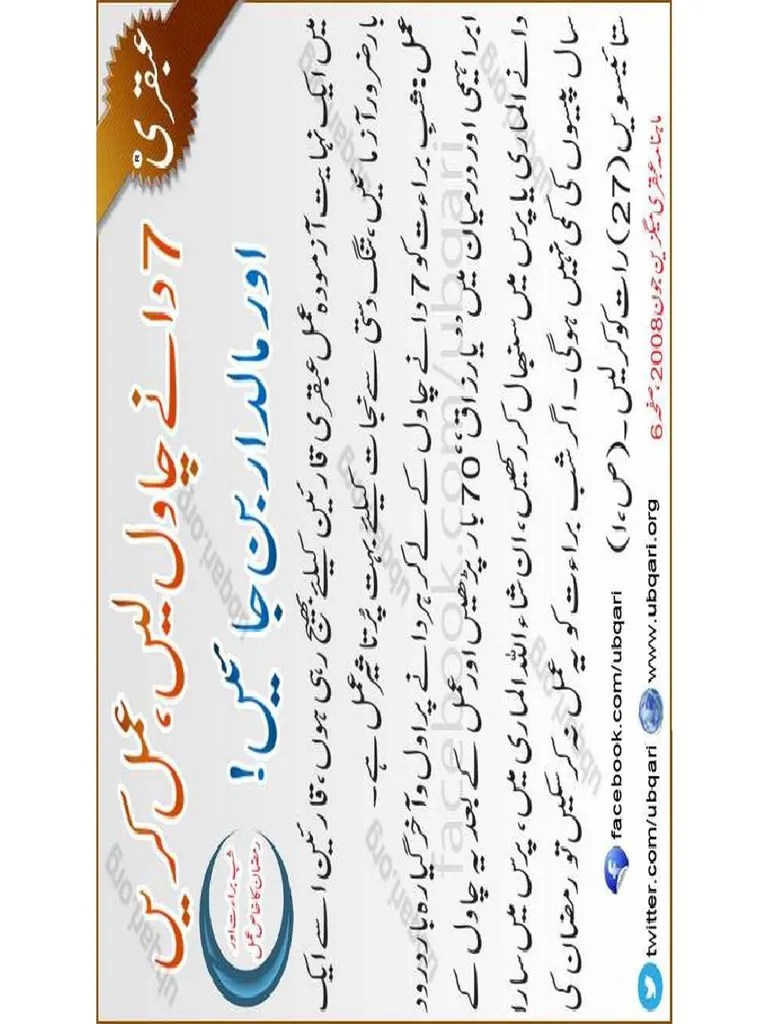 عبقری
7 دانے چاول لیں، عمل کریں
اور مالدار بن جائیں!
شب برات اور
رمضان کا خاص عمل
میں ایک نہایت آزمودہ عمل عبقری قارئین کیلئے بھیج رہی ہوں، قارئین اسے ایک
بار ضرور آزمائیں، تنگ دستی سے نجات کیلئے بہت پُرتاثیر عمل ہے۔
عمل: شب براءت کو 7 دانے چاول کے لے کر ہر دانے پر اول و آخر گیارہ بار درود
ابراہیمی اور درمیان میں ”یارزاق“ 70 بار پڑھیں اور عمل کے بعد یہ چاول کے
دانے الماری یا پرس میں سنبھال کر رکھیں، ان شاء اللہ الماری میں، پرس میں سارا
سال پیسوں کی کمی نہیں ہوگی۔ اگر شب براءت کو یہ عمل نہ کر سکیں تو رمضان کی
ستائیسویں (27) رات کو کرلیں۔ (ص،ا)
facebook.com/ubqari
ماہنامہ عبقری میگزین جون 2008، صفحہ 6
twitter.com/ubqari www.ubqari.org
facebook.com/ubqari
ubqari.org
ubqari.org
ubqari.org
ubqari.org
ubqari.org
ubqari.org